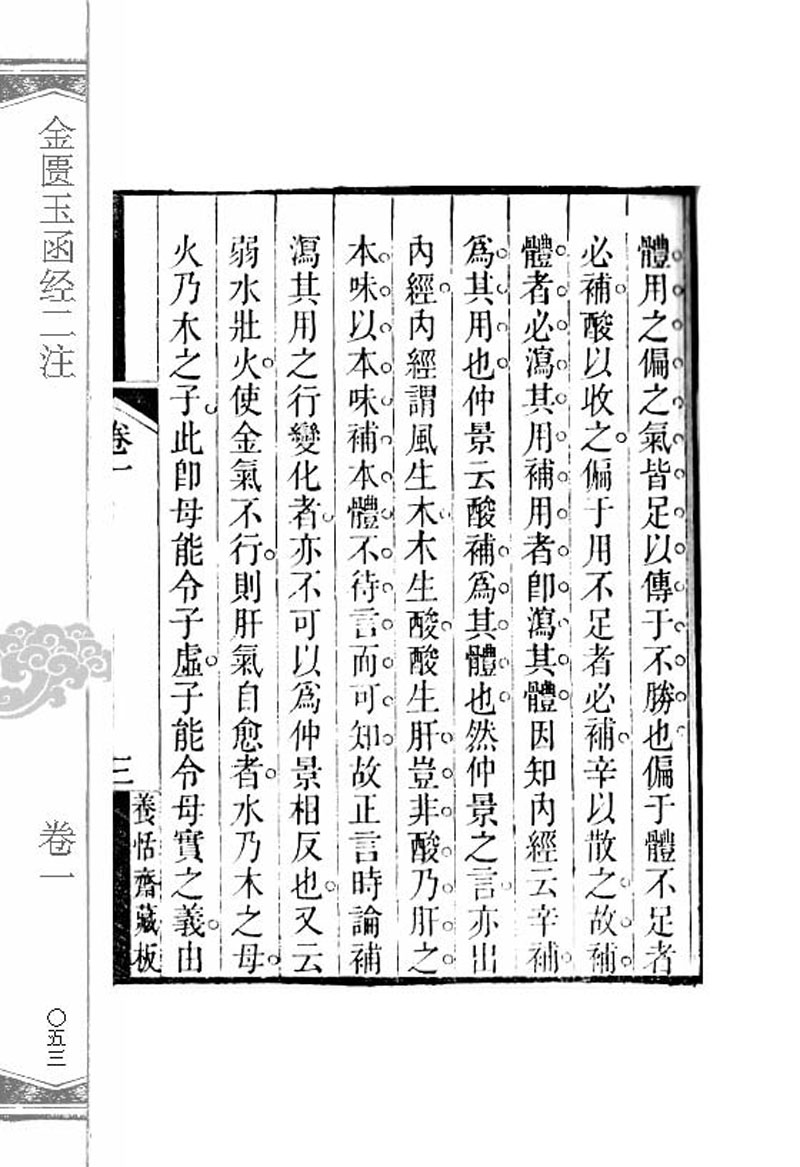 體用之偏之氣皆足以傳于不勝也偏于體不足者
必補酸以收之偏于用不足者必補辛以散之故補
體者必瀉其用補用者卽瀉其體因知內經云辛補
爲其用也仲景云酸補爲其體也然仲景之言亦出
內經內經謂風生木木生酸酸生肝豈非酸乃肝之
本味以本味補本體不待言而可知故正言時論補
瀉其用之行變化者亦不可以爲仲景相反也又云
弱水壯火使金氣不行則肝氣自愈者水乃木之母
火乃木之子此卽母能令子虛子能令母實之義由
卷一
三
養恬齋藏板
金匮玉函经二注
卷一
〇五三